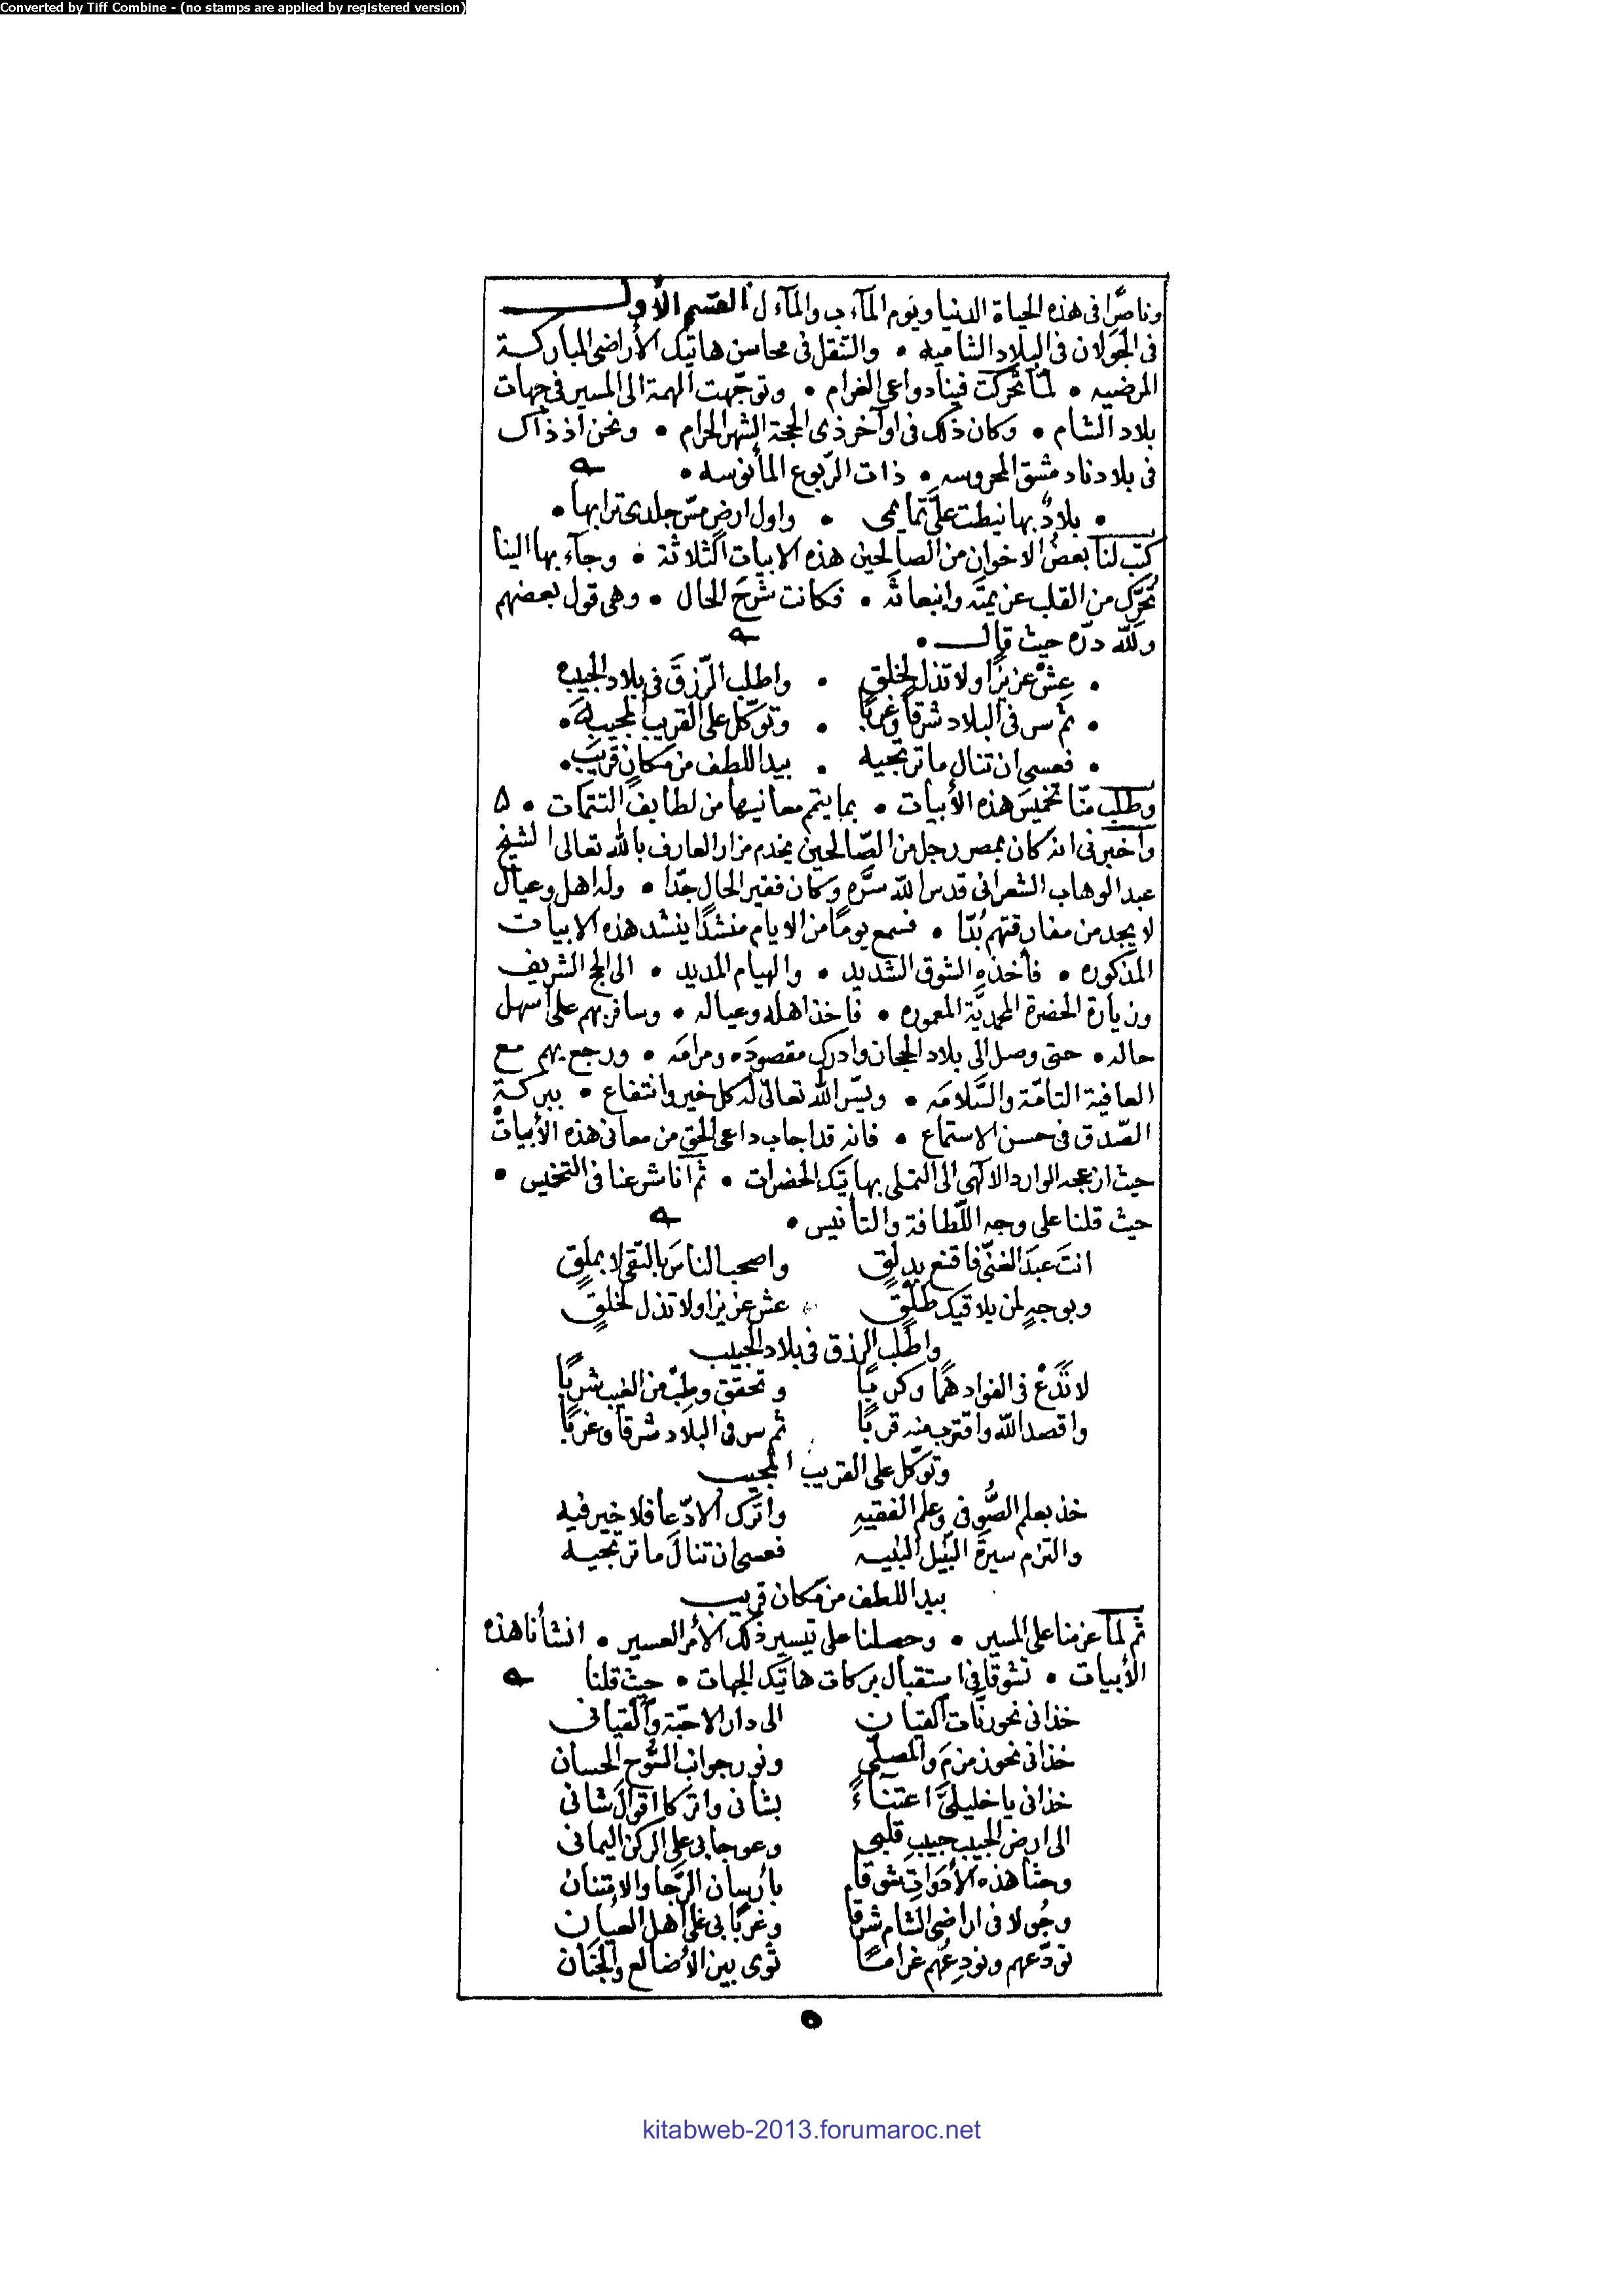 Converted by Tiff Combine - (no stamps are applied by registered version)
وناصرًا في هذه الحياة الدنيا ويوم المآب والمآل القسم الأول
في الجولان في البلاد الشاميه • والتنقل في محاسن هاتيك الأراضي المباركة
المرضيه • لما تحركت فينا دواعي الغرام • وتوجّهت الهمة الى المسير في جهات
بلاد الشام • وكان ذلك في اواخر ذى الحجة الشهر الحرام • ونحن اذ ذاك
في بلادنا دمشق المحروسه • ذات الرّبوع المأنوسه •
• بلادٌ بها نيطت علىَّ تمايمى • واول ارضٍ مسّ جلدى ترابها •
كتب لنا بعضُ الاخوان من الصالحين هذه الابيات الثلاثة • وجآء بها الينا
تحرّك من القلب عزيمتَه وانبعاثَه • فكانت شرحَ الحال • وهى قول بعضهم
وللّه درّه حيث قال •
• عِشْ عزيزًا ولا تذل لخلقٍ • واطلب الرّزقَ في بلاد الحبيب
• ثم سر في البلاد شرقًا وغربًا • وتوكّل على القريب المجيب •
• فعسى ان تنال ما ترتجيه • بيد اللطف من مكانٍ قريب •
وطلب منّا تخميسَ هذه الأبيات • بما يتم معانيها من لطايف التتمات • ۵
وأخبرنى انه كان بمصر رجل من الصّالحين يخدم مزار العارف بالله تعالى الشيخ
عبد الوهاب الشعرانى قدس اللّه سرّه وكان فقير الحال جدّا • وله اهل وعيال
لا يجد من مفارقتهم بُدّا • فسمع يومًا من الايام منشدًا ينشد هذه الابيات
المذكوره • فأخذه الشوق الشديد • والهيام المديد • الى الحج الشريف
وزيارة الحضرة المحمديّة المعموره • فاخذ اهله وعياله • وسافر بهم على اسهل
حاله • حتى وصل الى بلاد الحجاز وادرك مقصودَه ومرامَه • ورجع بهم مع
العافية التامّة والسّلامه • ويسّر الله تعالى له كل خير وانتفاع • ببركة
الصّدق في حسن الاستماع • فانه قد اجاب داعى الحق من معانى هذه الأبيات
حيث ازعجه الوارد الالهى الى التملى بهاتيك الحضرات • ثم انا شرعنا في التخميس •
حيث قلنا على وجه اللّطافة والتأنيس •
انتَ عبدَ الغنىّ فاقنع بدلقٍ واصحب الناسَ بالتقى لا بملقٍ
وبوجهٍ لمن يلاقيك طلْقٍ عش عزيزا ولا تذل لخلقٍ
واطلب الرزق في بلاد الحبيب
لا تَدَعْ في الفواد همًّا وكربًا وتحقق وطِبْ من الغيب شربًا
واقصد اللّه واقترب منه قربًا ثم سر في البلاد شرقًا وغربًا
وتوكّل على القريب المجيب
خذ بعلم الصُّوفى وعلم الفقيهِ واترك الادّعا فلا خير فيه
والتزم سيرةَ النبيل النبيه فعسى ان تنال ما ترتجيه
بيد اللطف من مكان قريب
ثم لما عزمنا على المسير • وحصلنا على تيسير ذلك الأمر العسير • انشأنا هذه
الأبيات • تشوقًا في استقبال بركات هاتيك الجهات • حيث قلنا
خذانى نحو رنّات القيان الى دار الاحبّة والقيانى
خذانى نحو زمزمَ والمصلّى ونور جوانب السُّوح الحسان
خذانى يا خليلىَّ اعتناءً بشانى واتركا اقوالَ شانى
الى ارض الحبيب حبيبِ قلبى وعوجا بى على الركن اليمانى
وحثا هذه الأدوات شوقًا بأرسان الرّجا والامتنان
وجُولا في اراضى الشام شرقًا وغربًا بى على اهل العيان
نودّعهم ونودِعُهم غرامًا ثوى بين الأضالع والجَنان
۵
kitabweb-2013.forumaroc.net